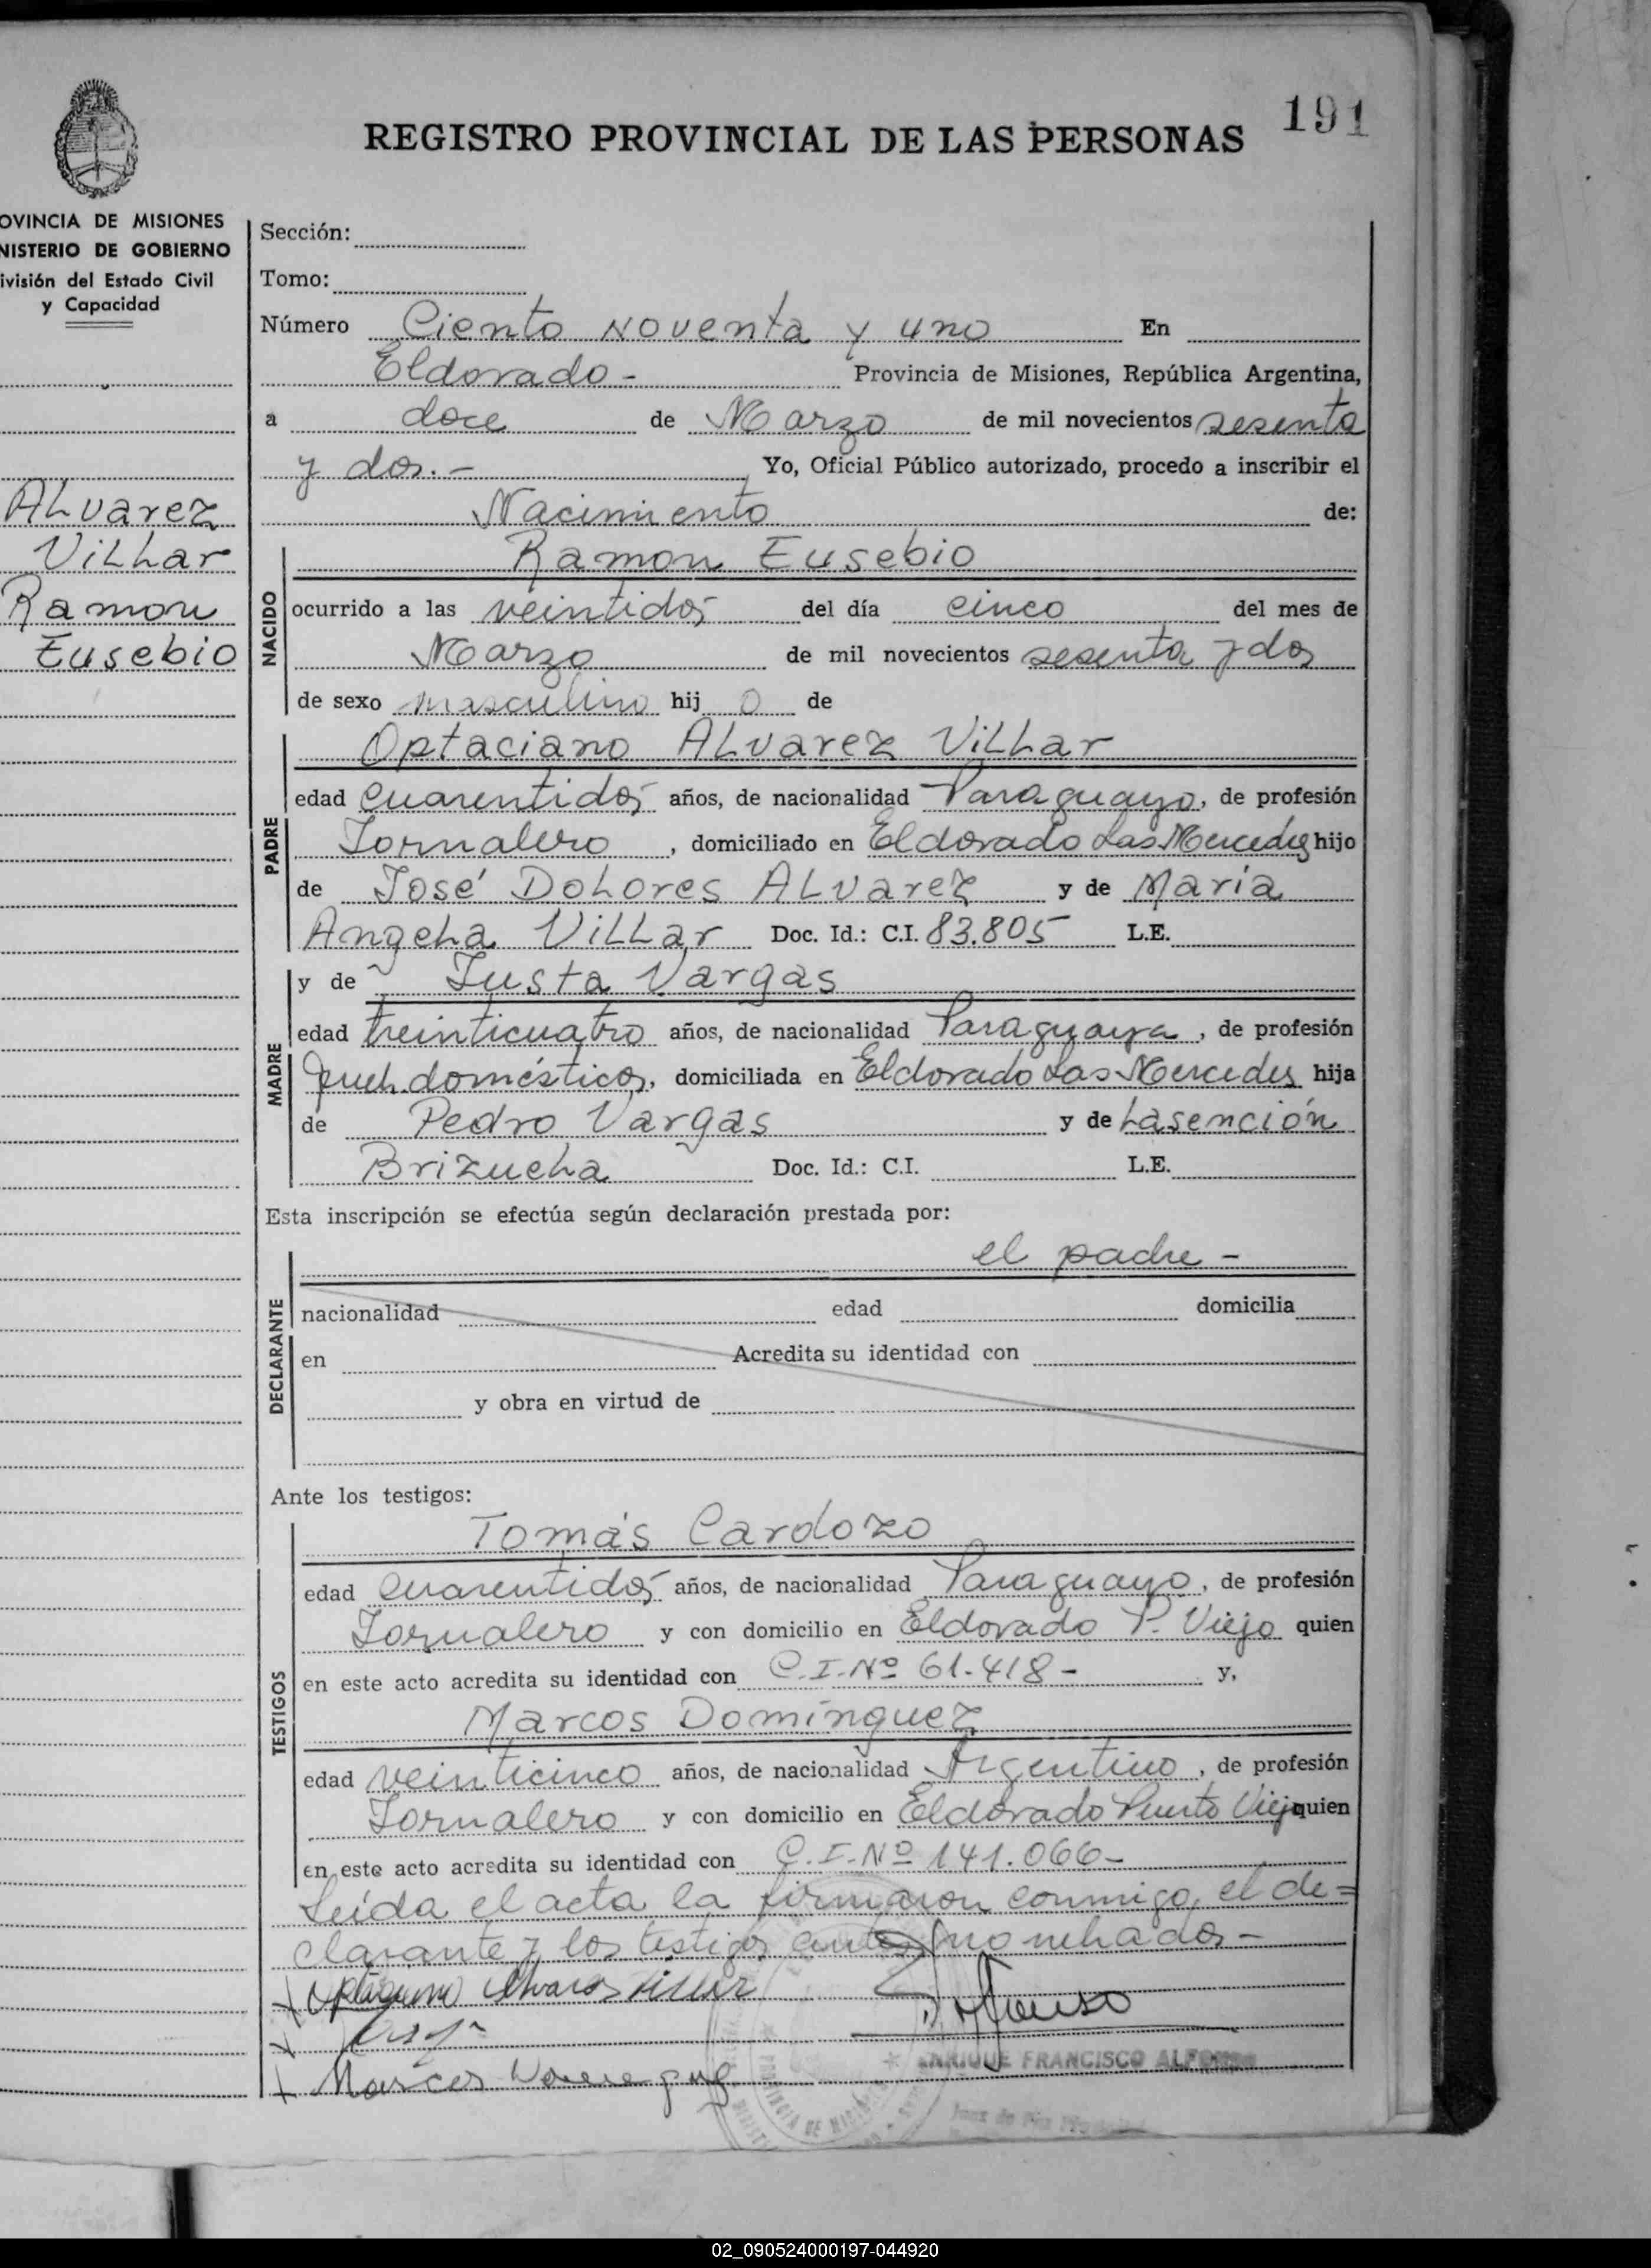 191
REGISTRO PROVINCIAL DE LAS PERSONAS
OVINCIA DE MISIONES
NISTERIO DE GOBIERNO
ivisión del Estado Civil
y Capacidad
ALvarez
ViLLar
Ramon
Eusebio
Sección:
Tomo:
Número Ciento Noventa y uno En
Eldorado - Provincia de Misiones, República Argentina,
a doce de Marzo de mil novecientos sesenta
y dos.- Yo, Oficial Público autorizado, procedo a inscribir el
Nacimiento de:
NACIDO
Ramon Eusebio
ocurrido a las veintidós del día cinco del mes de
Marzo de mil novecientos sesenta y dos
de sexo masculino hij o de
PADRE
Optaciano ALvarez ViLLar
edad cuarentidós años, de nacionalidad Paraguayo, de profesión
Jornalero, domiciliado en Eldorado Las Mercedes hijo
de José DoLores ALvarez y de María
AngeLa ViLLar Doc. Id.: C.I. 83.805 L.E.
MADRE
y de Justa Vargas
edad treinticuatro años, de nacionalidad Paraguaya, de profesión
queh. domésticos, domiciliada en Eldorado Las Mercedes hija
de Pedro Vargas y de Lasención
BrizueLa Doc. Id.: C.I. L.E.
Esta inscripción se efectúa según declaración prestada por:
DECLARANTE
el padre -
nacionalidad edad domicilia
en Acredita su identidad con
y obra en virtud de
Ante los testigos:
TESTIGOS
Tomás Cardozo
edad cuarentidós años, de nacionalidad Paraguayo, de profesión
Jornalero y con domicilio en Eldorado P. Viejo quien
en este acto acredita su identidad con C.I.Nº 61.418 - y,
Marcos Domínguez
edad veinticinco años, de nacionalidad Argentino, de profesión
Jornalero y con domicilio en Eldorado Puerto Viejo quien
en este acto acredita su identidad con C.I.Nº 141.066-
Leída el acta la firmaron conmigo, el de=
clarante y los testigos antes
Alvares Villar
Alfonso
ENRIQUE FRANCISCO ALFONSO
Marcos
PROVINCIA DE MISIONES
Juez de Paz
02_090524000197-044920